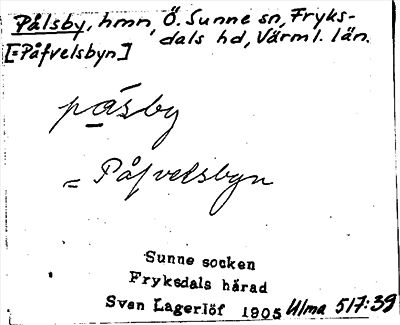 Pålsby, hmn, Ö. Sunne sn, Fryks-
dals hd, Värml. län.
[=Påfvelsbyn]
påsby
= Påfvelsbyn
Sunne socken
Fryksdals härad
Sven Lagerlöf 1905 Ulma 517:39